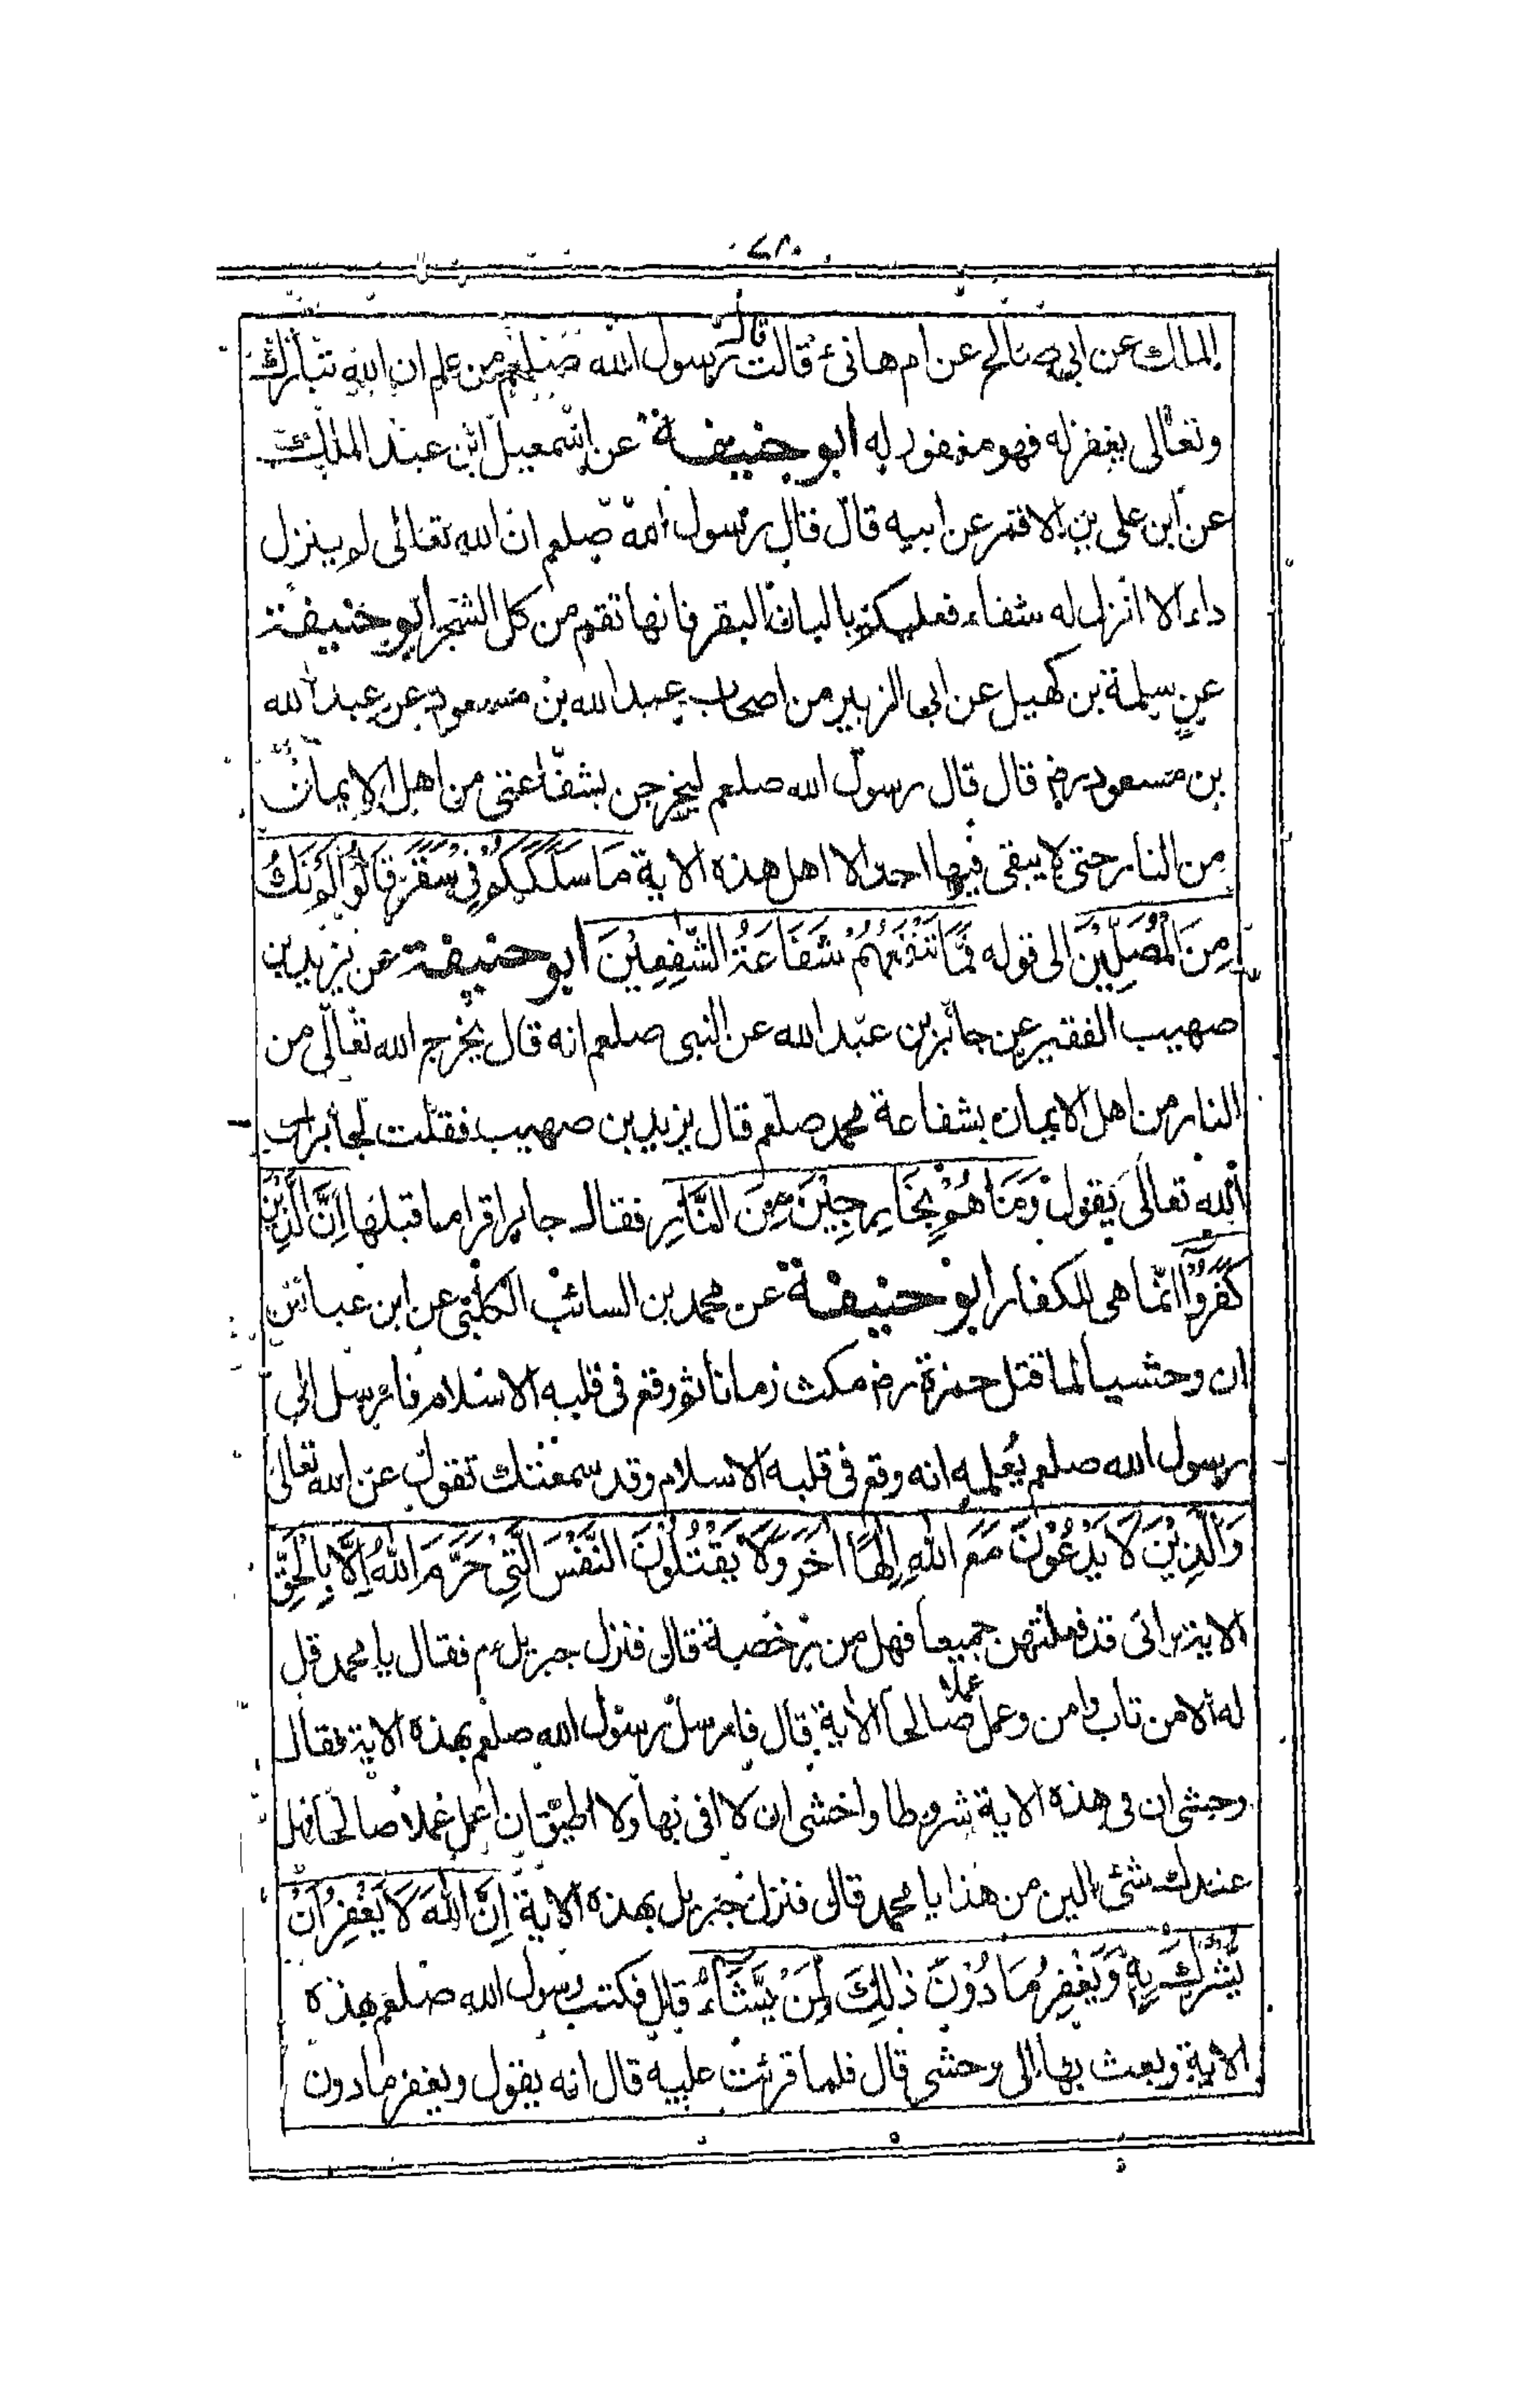 ٢٨٠
الملك عن ابي صالح عن ام هانئ قالت قال رسول الله صلعم من علم ان الله تبارك
وتعالى يغفر له فهو مغفور له ابو حنيفة عن اسمعيل ابن عبد الملك
عن ابن على بن الاقمر عن ابيه قال قال رسول الله صلعم ان الله تعالى لم ينزل
داء الا انزل له شفاء فعليكم بالبان البقر فانها تقم من كل الشجر ابو حنيفة
عن سلمة بن كهيل عن ابى الزبير من اصحاب عبد الله بن مسعود عن عبد الله
بن مسعود رض قال قال رسول الله صلعم ليخرجن بشفاعتى من اهل الايمان
من النار حتى لا يبقى فيها احد الا اهل هذه الاية مَا سَلَكَكُمْ فِىْ سَقَرَ قَالُوْا لَمْ نَكُ
مِنَ الْمُصَلِّيْنَ الى قوله فَمَا تَنْفَعُهُمْ شَفَاعَةُ الشّٰفِعِيْنَ ابو حنيفة عن يزيد بن
صهيب الفقير عن جابر بن عبد الله عن النبى صلعم انه قال يخرج الله تعالى من
النار من اهل الايمان بشفاعة محمد صلعم قال يزيد بن صهيب فقلت لجابر ان
الله تعالى يقول وَمَا هُمْ بِخَارِجِيْنَ مِنَ النَّارِ فقال جابر اقرا ما قبلها اِنَّ الَّذِيْنَ
كَفَرُوْا انما هى للكفار ابو حنيفة عن محمد بن السائب الكلبى عن ابن عباس
ان وحشيا لما قتل حمزة رض مكث زمانا ثم وقع فى قلبه الاسلام فارسل الى
رسول الله صلعم يُعلمه انه وقع فى قلبه الاسلام وقد سمعتك تقول عن الله تعالى
وَالَّذِيْنَ لَا يَدْعُوْنَ مَعَ اللهِ اِلٰهًا اٰخَرَ وَلَا يَقْتُلُوْنَ النَّفْسَ الَّتِىْ حَرَّمَ اللهُ اِلَّا بِالْحَقِّ
الاية وانى قد فعلتهن جميعا فهل من رخصة قال فنزل جبريل ع م فقال يا محمد قل
له الا من تاب وامن وعمل عملا صالحا الاية قال فارسل رسول الله صلعم بهذه الاية فقال
وحشى ان فى هذه الاية شروطا واخشى ان لا افى بها ولا اطيق ان اعمل عملا صالحا فهل
عندك شئ الين من هذا يا محمد قال فنزل جبريل بهذه الاية اِنَّ اللهَ لَا يَغْفِرُ اَنْ
يُّشْرَكَ بِهٖ وَيَغْفِرُ مَا دُوْنَ ذٰلِكَ لِمَنْ يَّشَآءُ قال فكتب رسول الله صلعم بهذه
الاية وبعث بها الى وحشى قال فلما قرئت عليه قال انه يقول ويغفر ما دون